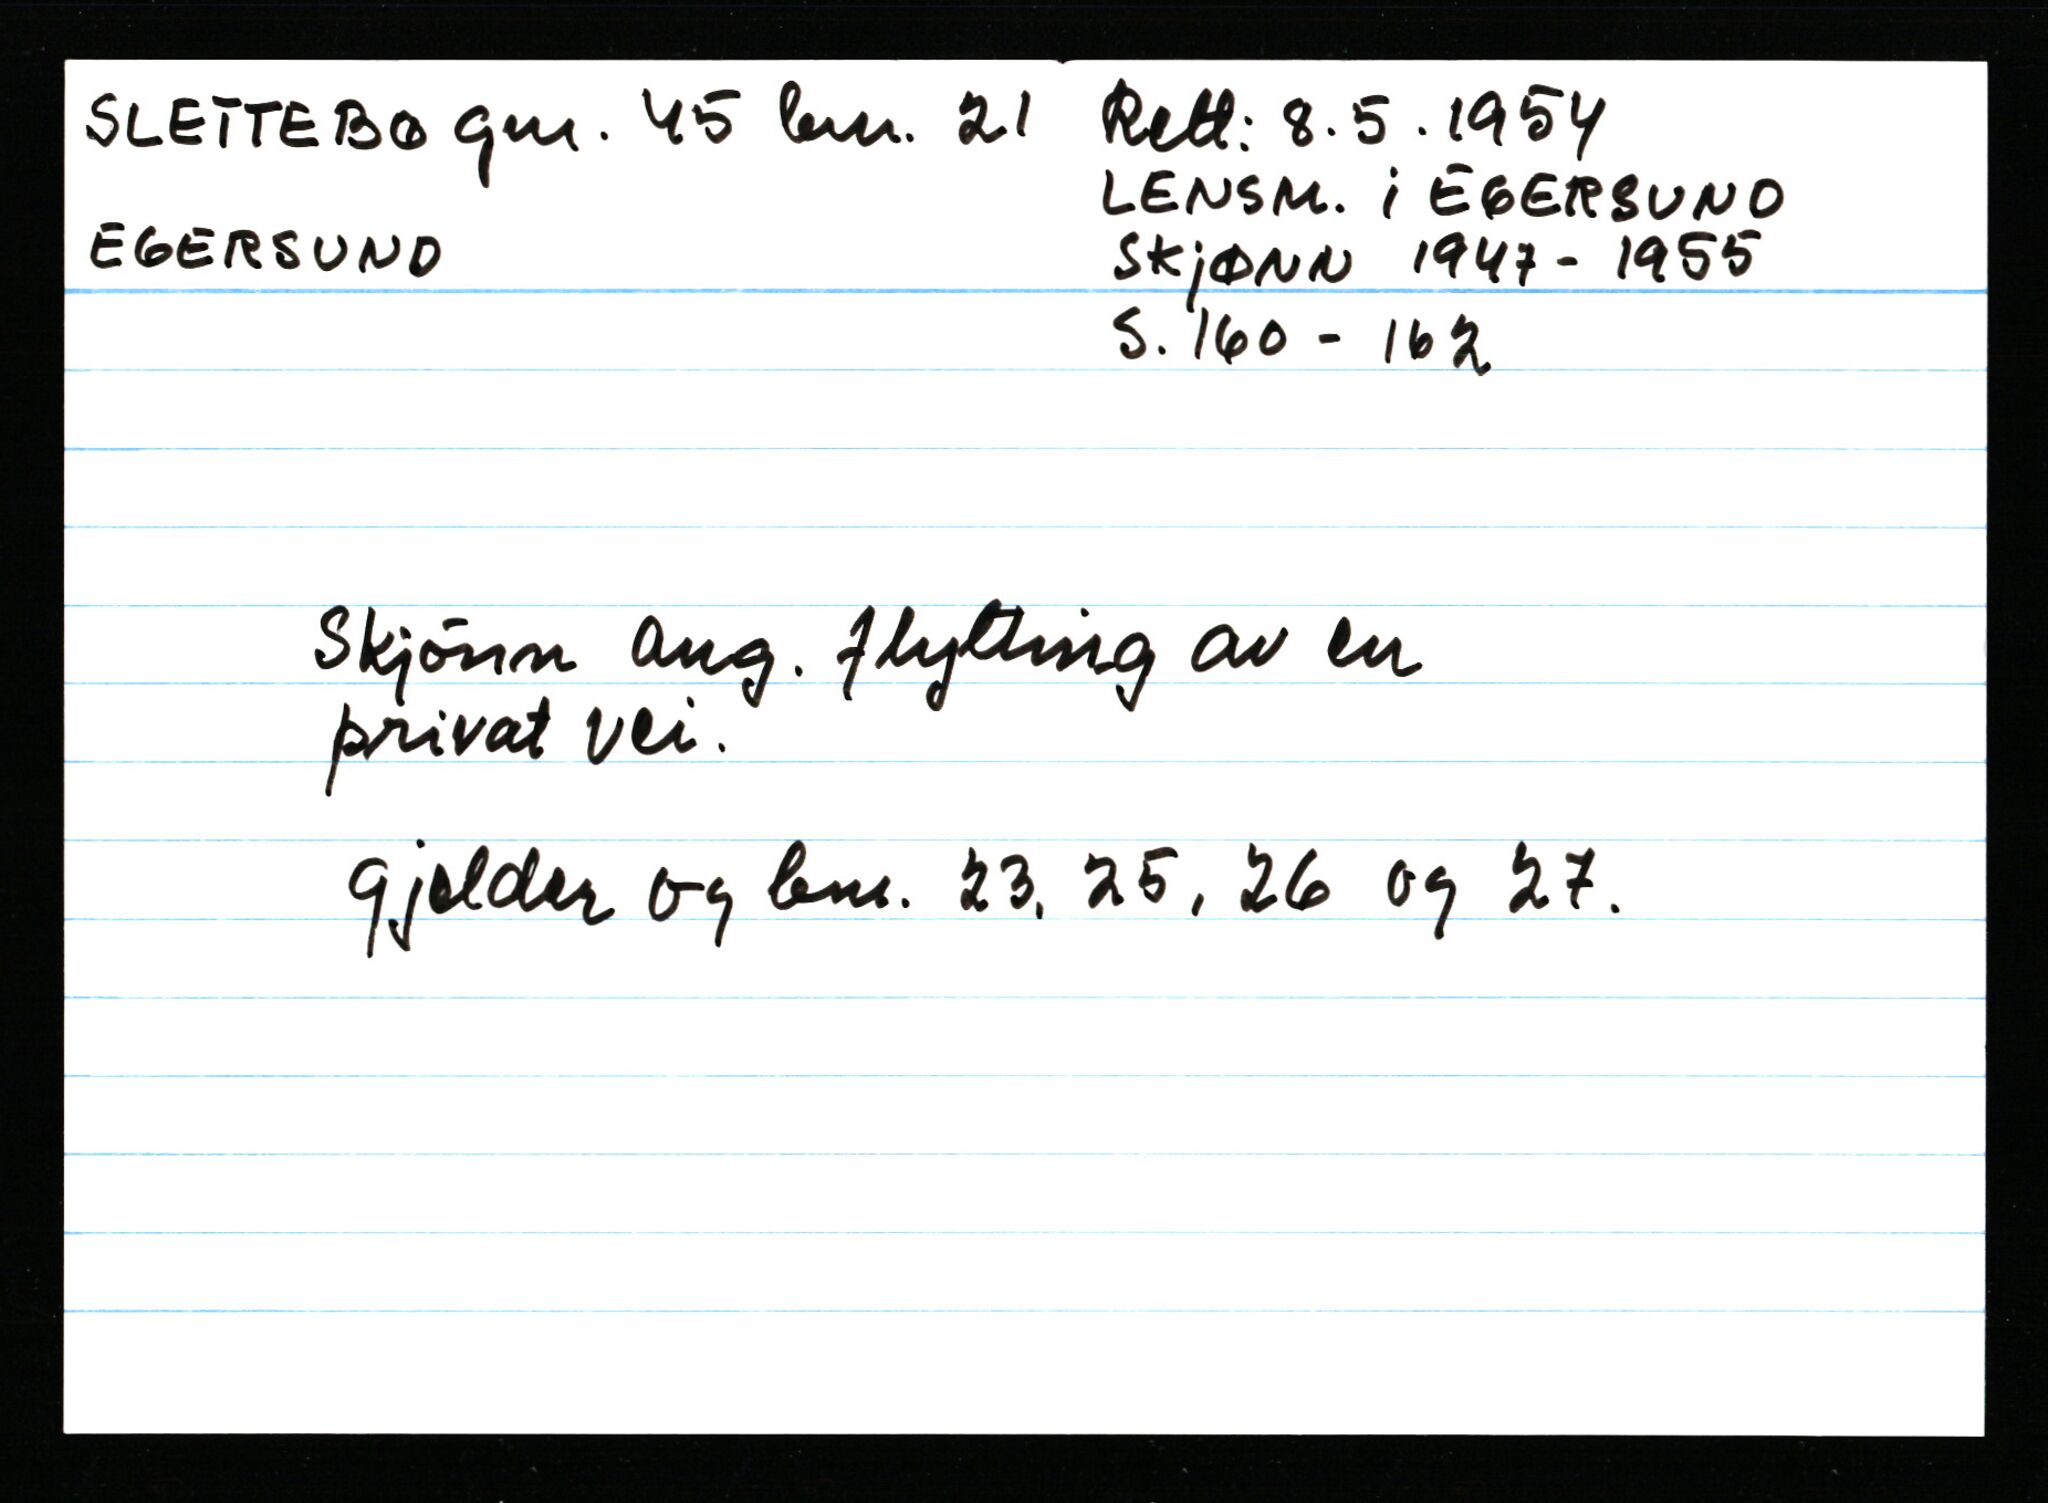 SLETTEBØ gnr. 45 bnr. 21
EGERSUND
Rett: 8.5.1954
LENSM. i EGERSUND
SKjØNN 1947 - 1955
S. 160 - 162
Skjönn ang. flytting av en
privat vei.
Gjelder og bnr. 23, 25, 26 og 27.